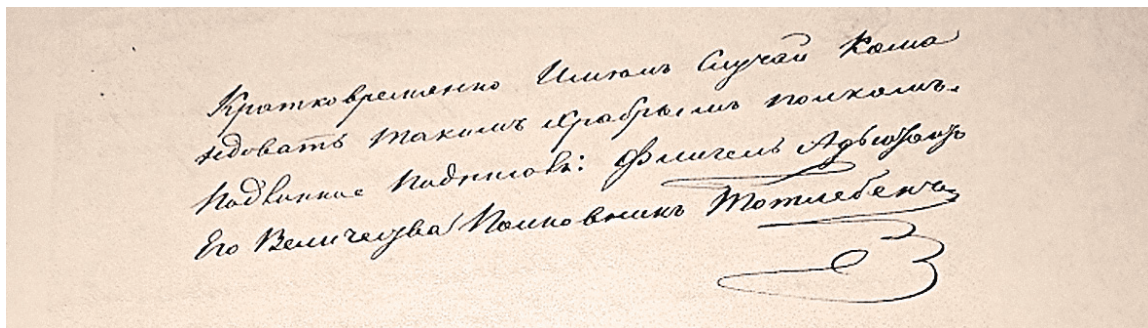 Кратковременно Имелъ Случай Кома
ндовать такимъ храбрымъ полкомъ.
Подлинное Подписалъ: Флигель Адъютантъ
Его Величества Полковникъ Тотлебенъ